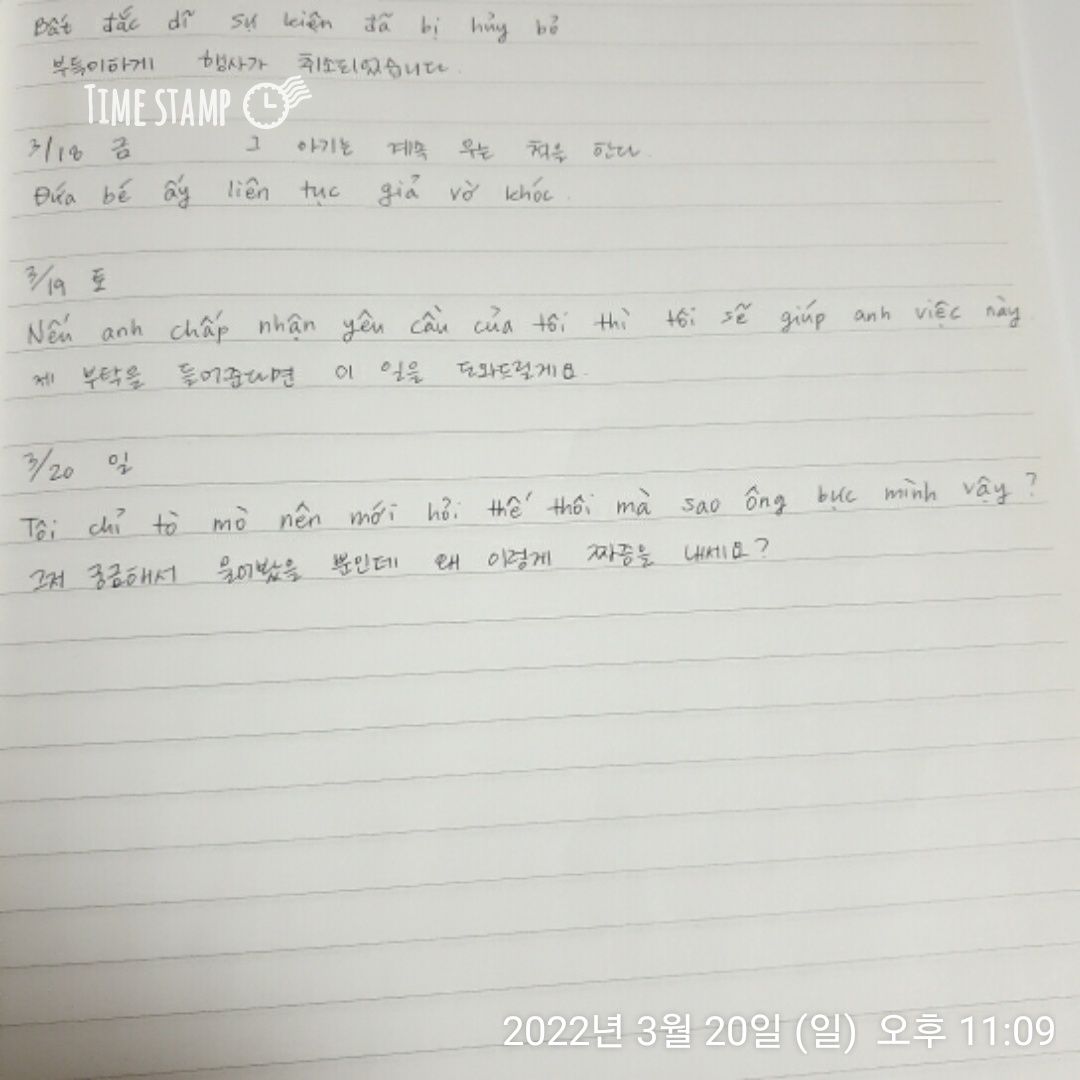 Bất đắc dĩ sự kiện đã bị hủy bỏ
부득이하게 행사가 취소되었습니다.
TIME STAMP
3/18 금 그 아기는 계속 우는 척을 한다.
Đứa bé ấy liên tục giả vờ khóc.
3/19 토
Nếu anh chấp nhận yêu cầu của tôi thì tôi sẽ giúp anh việc này.
제 부탁을 들어준다면 이 일을 도와드릴게요.
3/20 일
Tôi chỉ tò mò nên mới hỏi thế thôi mà sao ông bực mình vậy?
그저 궁금해서 물어봤을 뿐인데 왜 이렇게 짜증을 내세요?
2022년 3월 20일 (일) 오후 11:09